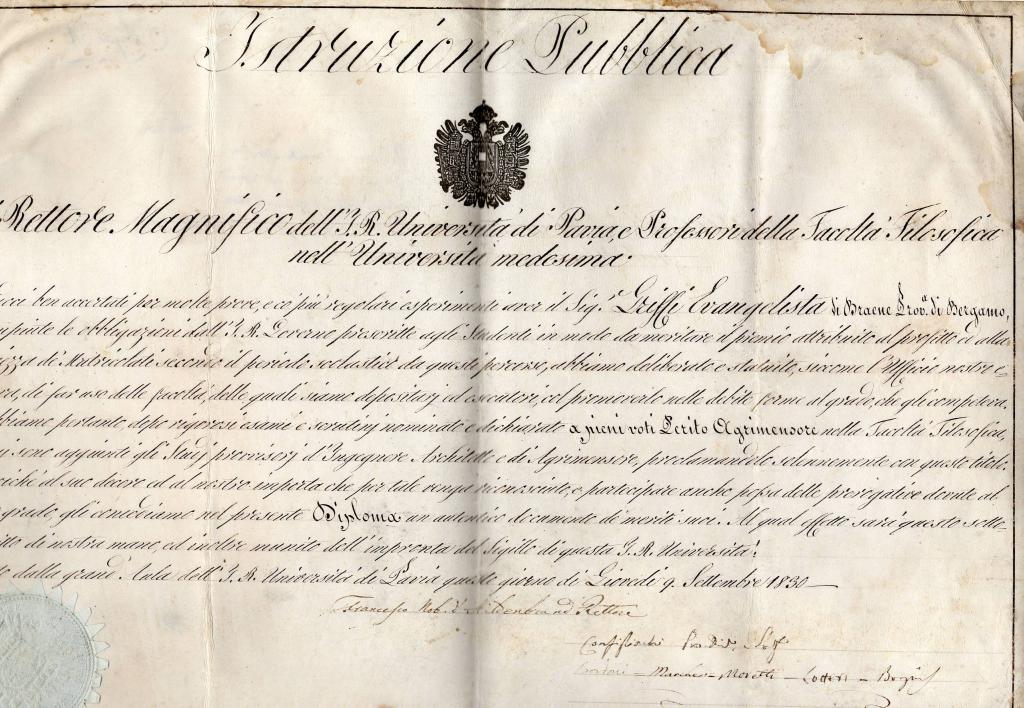 Istruzione Pubblica
Rettore Magnifico dell'I. R. Università di Pavia, e Professori della Facoltà Filosofica
nell'Università medesima.
ben accertati per molte prove, e co' più regolari esperimenti aver il Sig.r Griffi Evangelista di Braene Prov.a di Bergamo,
le obbligazioni dall'I. R. Governo prescritte agli Studenti in modo da meritare il premio attribuito al profitto ed alla
di Matricolati secondo il periodo scolastico da questi percorso, abbiamo deliberato e statuito, siccome l'Uffizio nostro
di far uso delle facoltà, delle quali siamo depositarj ed esecutori, col promoverlo nelle debite forme al grado, che gli competeva,
pertanto dopo rigorosi esami e scrutinj nominato e dichiarato a pieni voti Perito Agrimensore nella Facoltà Filosofica,
sono aggiunti gli Studj provvisorj d'Ingegnere Architetto e di Agrimensore, proclamandolo solennemente con questo titolo.
al suo decoro ed al nostro importa che per tale venga riconosciuto, e partecipare anche possa delle prerogative dovute al
grado, gli concediamo nel presente Diploma un autentico documento di meriti suoi. Al qual effetto sarà questo sotto-
di nostra mano, ed inoltre munito dell'impronta del Sigillo di questa I. R. Università.
dalla grand'Aula dell'I. R. Università di Pavia questo giorno di Giovedì 9. Settembre 1830
Francesco Nob. Rettore
Configliachi
Moretti